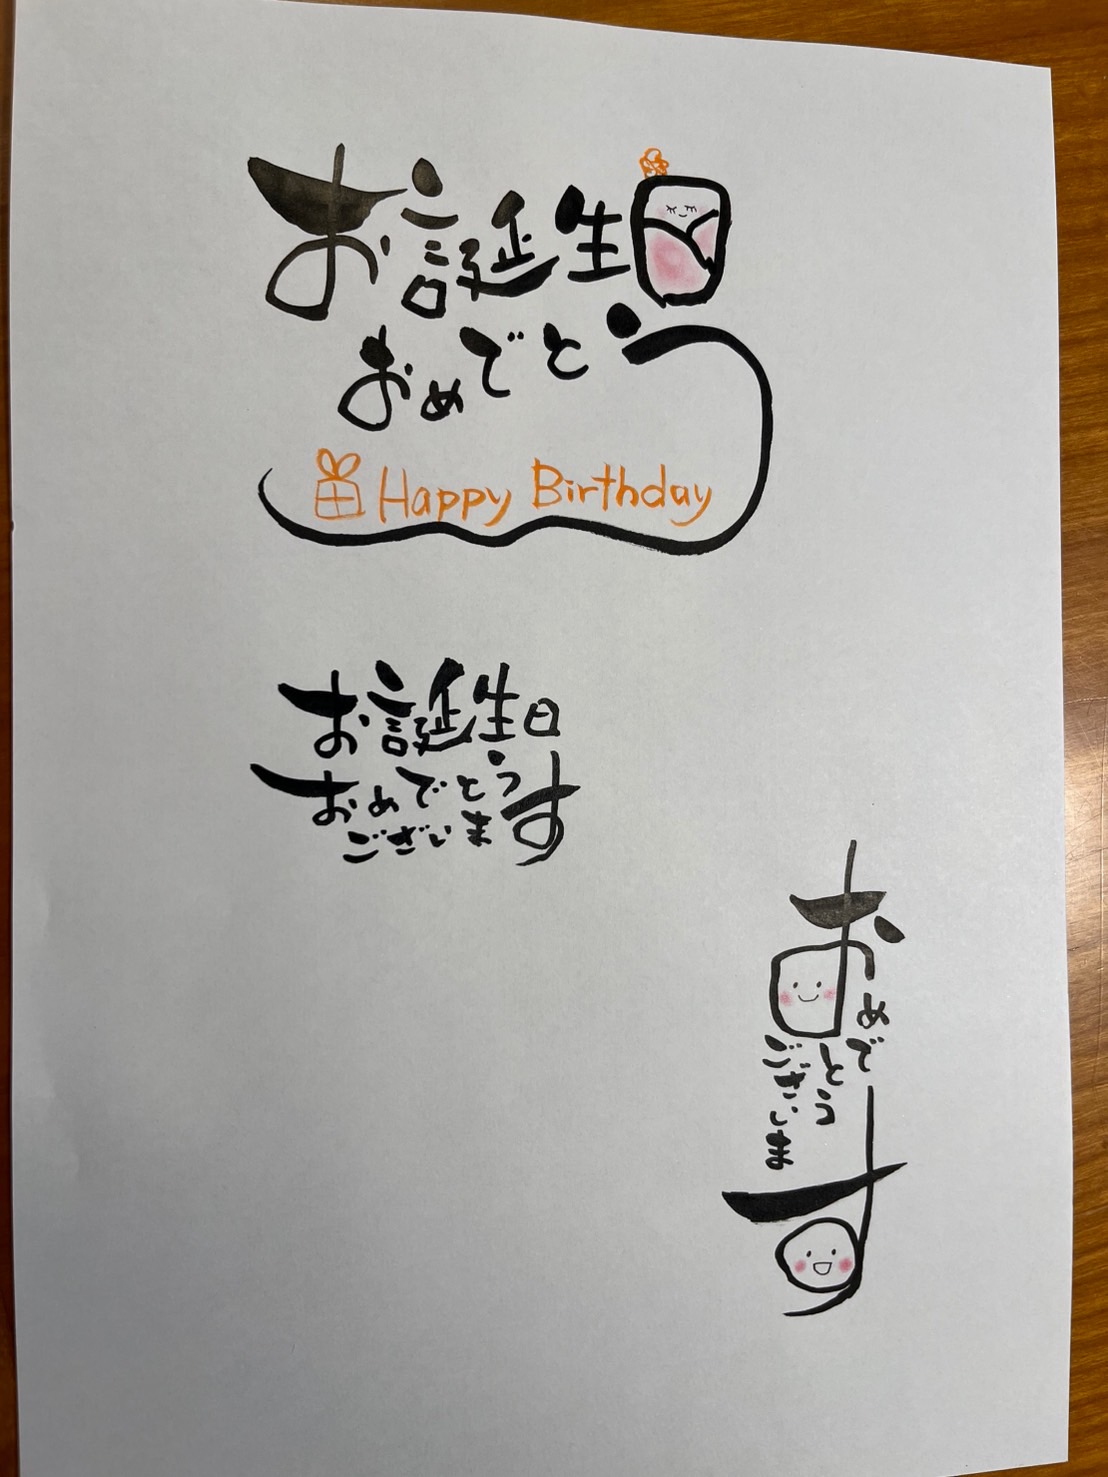 お誕生日
おめでとう
Happy Birthday
お誕生日
おめでとう
ございます
おめでとう
ございます